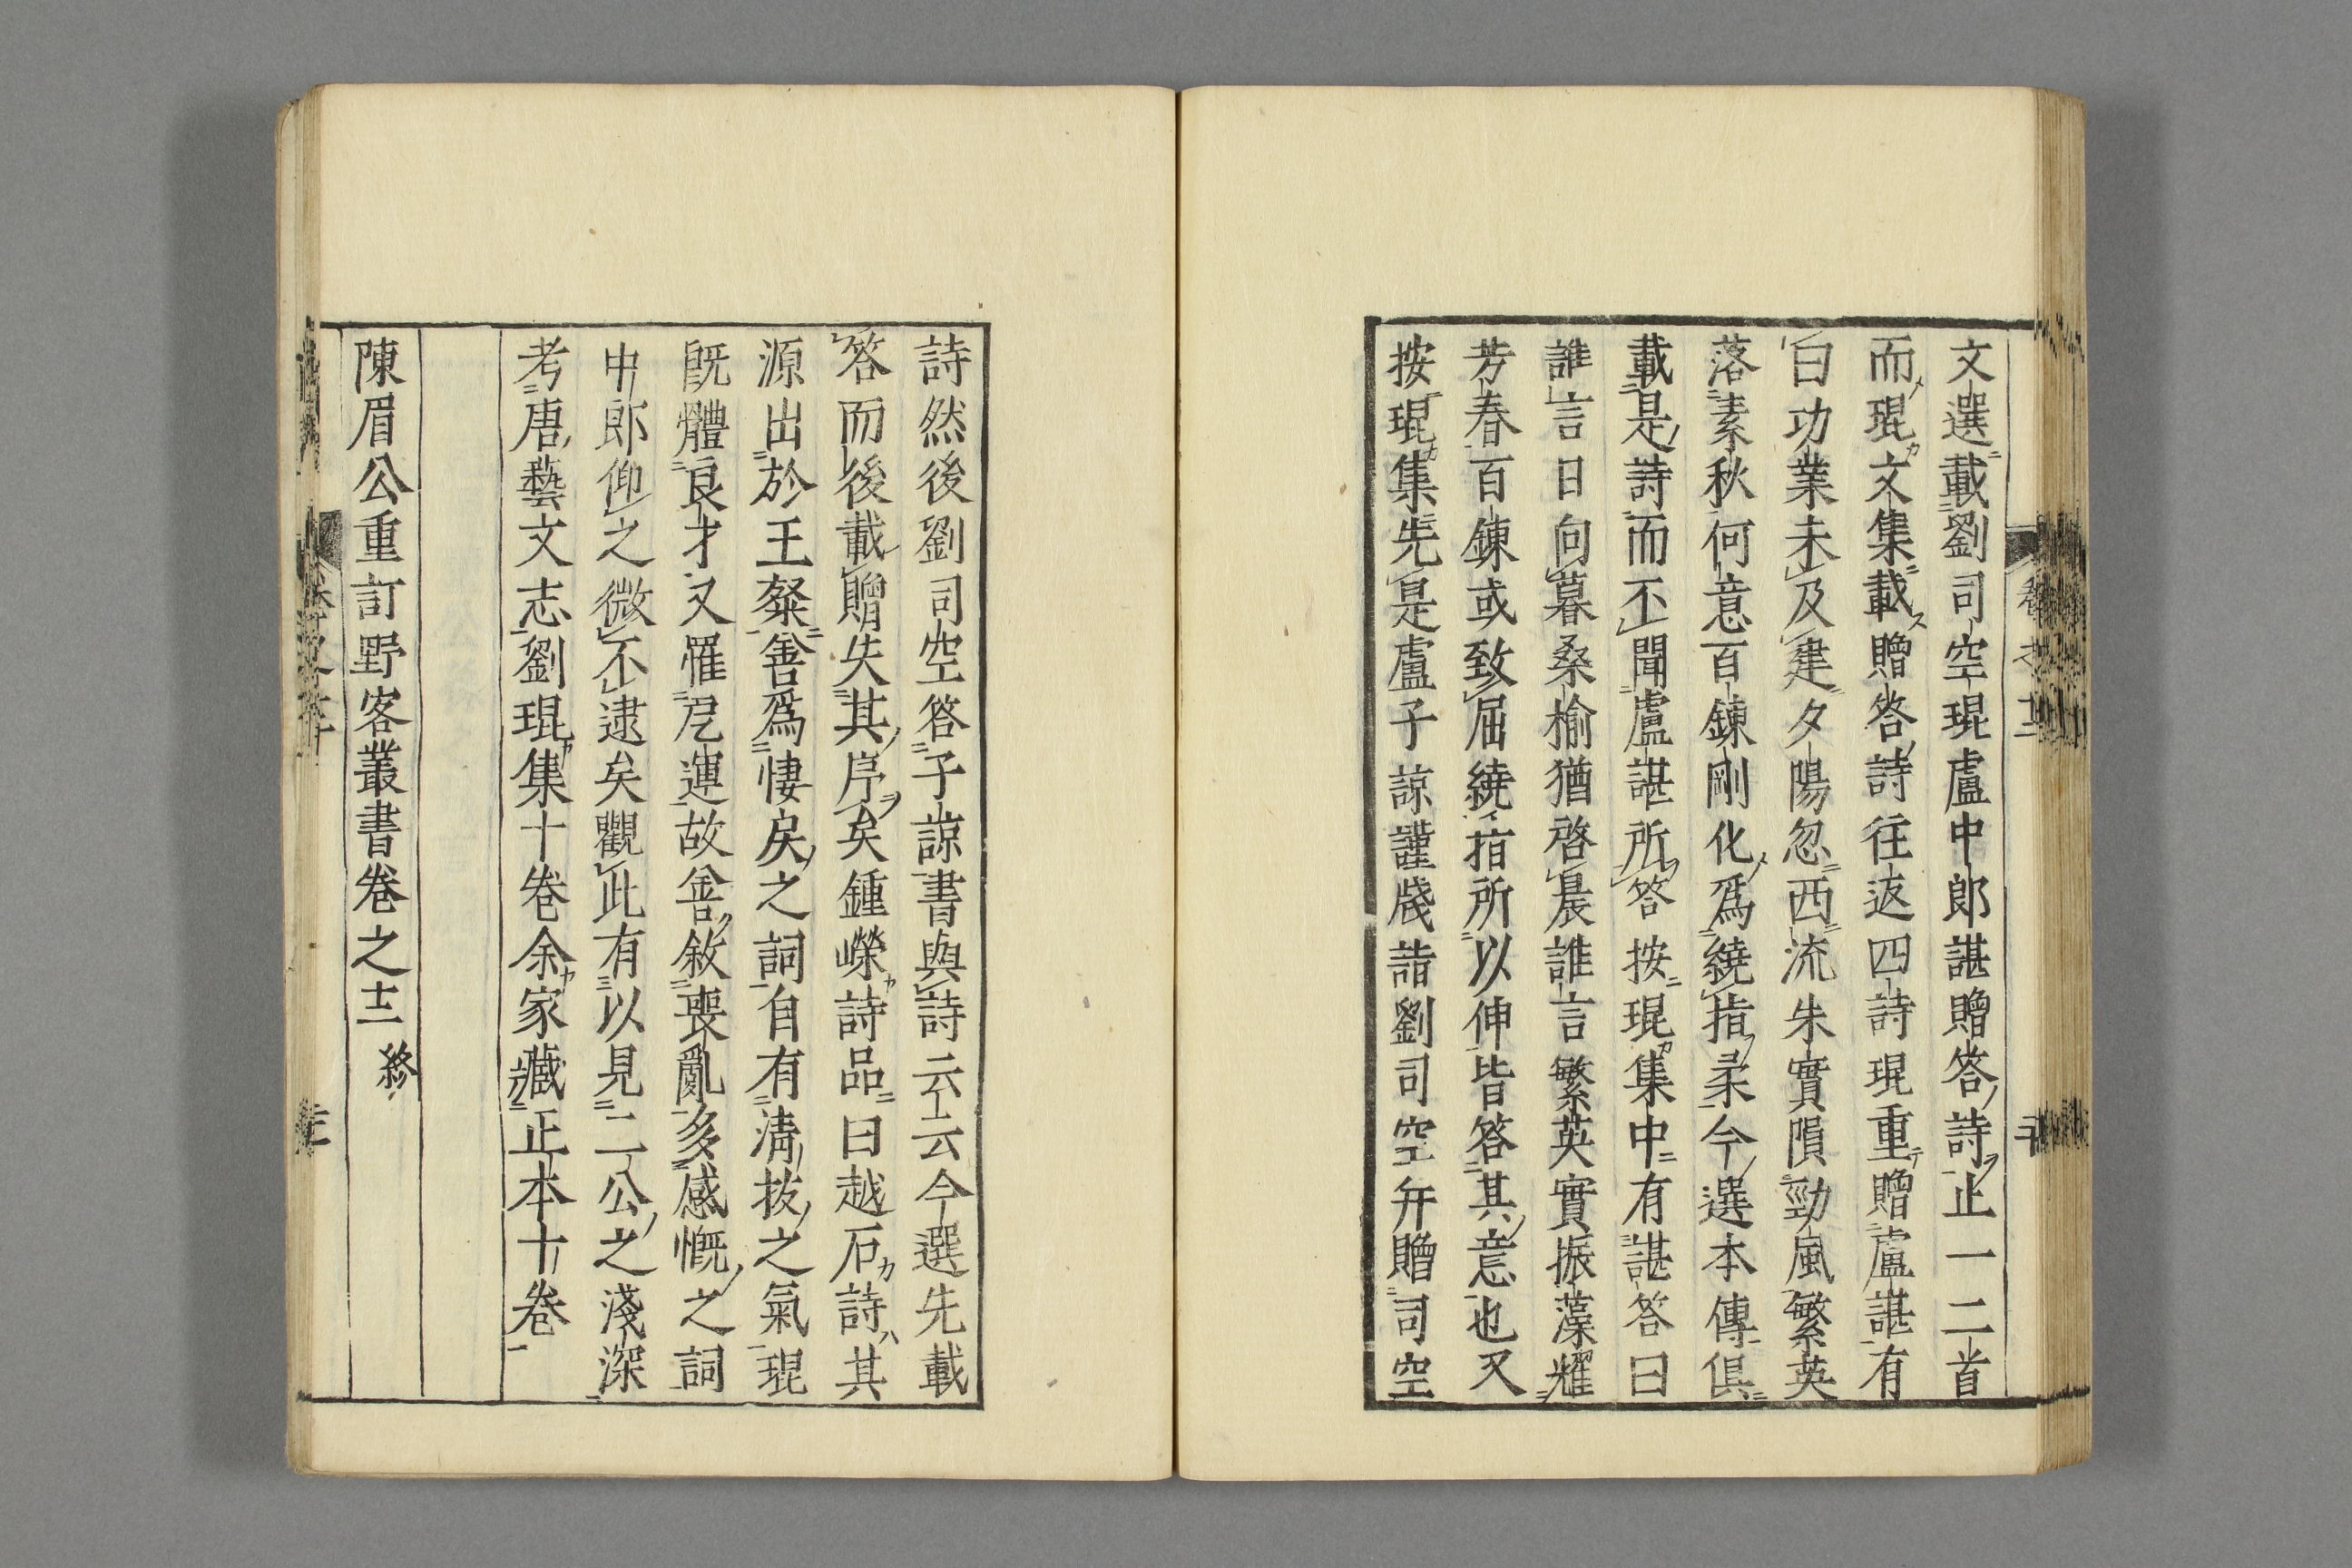 文選載劉司空琨盧中郎諶贈答詩止一二首
而琨文集載贈答詩往返四詩琨重贈盧諶有
曰功業未及建夕陽忽西流朱實隕勁風繁英
落素秋何意百鍊剛化爲繞指柔今選本傳俱
載是詩而不聞盧諶所答按琨集中有諶答曰
誰言日向暮桑榆猶啓晨誰言繁英實振藻耀
芳春百鍊或致屈繞指所以伸皆答其意也又
按琨集先是盧子諒謹牋詣劉司空并贈司空
詩然後劉司空答子諒書與詩云云今選先載
答而後載贈失其序矣鍾嶸詩品曰越石詩其
源出於王粲善爲悽戾之詞自有淸拔之氣琨
旣體良才又罹戹運故善敘喪亂多感慨之詞
中郎仰之微不逮矣觀此有以見二公之淺深
考唐藝文志劉琨集十卷余家藏正本十卷
陳眉公重訂野客叢書卷之十二 終